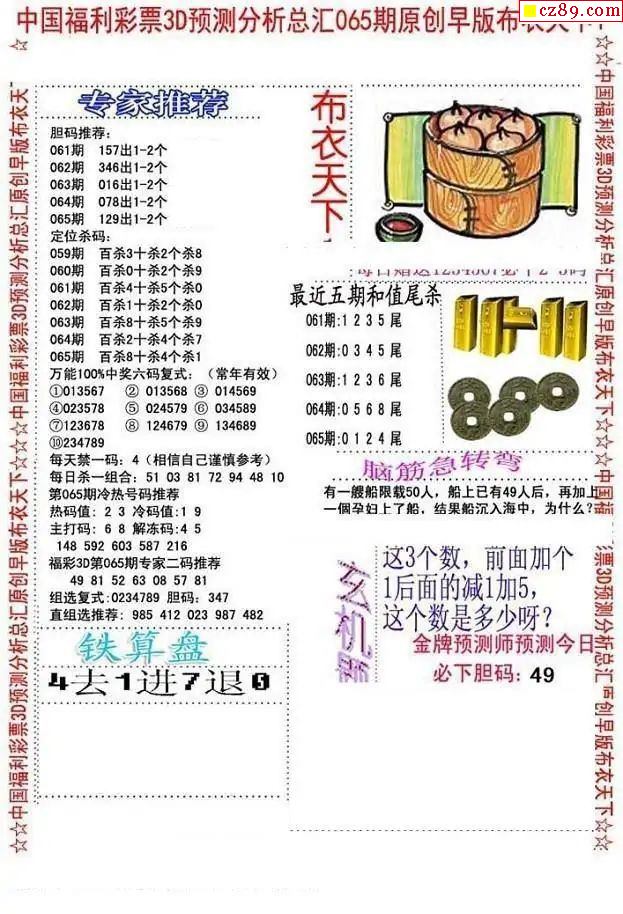 中国福利彩票3D预测分析总汇065期原创早版布衣天下
cz89.com
专家推荐
胆码推荐:
061期 157出1-2个
062期 346出1-2个
063期 016出1-2个
064期 078出1-2个
065期 129出1-2个
定位杀码:
059期 百杀3十杀2个杀8
060期 百杀0十杀2个杀9
061期 百杀4十杀5个杀0
062期 百杀1十杀2个杀0
063期 百杀8十杀5个杀9
064期 百杀2十杀4个杀7
065期 百杀8十杀4个杀1
万能100%中奖六码复式:(常年有效)
①013567 ②013568 ③014569
④023578 ⑤024579 ⑥034589
⑦123678 ⑧124679 ⑨134689
⑩234789
每天禁一码: 4(相信自己谨慎参考)
每日杀一组合: 51 03 81 72 94 48 10
第065期冷热号码推荐
热码值: 2 3 冷码值:1 9
主打码: 6 8 解冻码:4 5
148 592 603 587 216
福彩3D第065期专家二码推荐
49 81 52 63 08 57 81
组选复式:0234789 胆码: 347
直组选推荐: 985 412 023 987 482
铁算盘
4去1进7退0
布衣天下
每日赠送1234567必下2-3码
最近五期和值尾杀
061期:1 2 3 5 尾
062期:0 3 4 5 尾
063期:1 2 3 6 尾
064期:0 5 6 8 尾
065期:0 1 2 4 尾
脑筋急转弯
有一艘船限载50人,船上已有49人后,再加上
一個孕妇上了船,结果船沉入海中,为什么?
玄机
这3个数,前面加个
1后面的减1加5,
这个数是多少呀?
金牌预测师预测今日
必下胆码: 49
☆☆中国福利彩票3D预测分析总汇原创早版布衣天下☆☆☆中国福利彩票3D预测分析总汇原创早版布衣天
☆☆中国福利彩票3D预测分析总汇原创早版布衣天下☆☆☆中国福
票3D预测分析总汇原创早版布衣天下☆☆